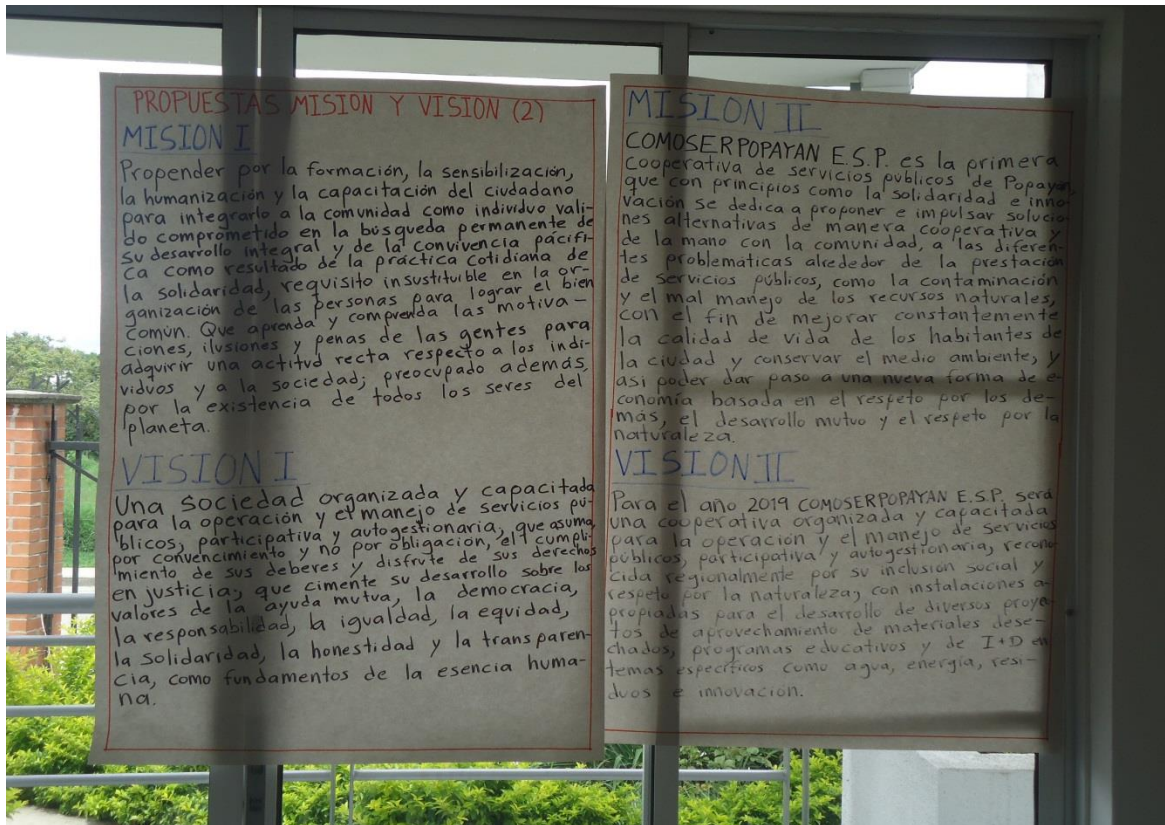 PROPUESTAS MISION Y VISION (2)
MISION I
Propender por la formación, la sensibilización,
la humanización y la capacitación del ciudadano
para integrarlo a la comunidad como individuo vali-
do comprometido en la búsqueda permanente de
su desarrollo integral y de la convivencia pácifi-
ca como resultado de la práctica cotidiana de
la solidaridad, requisito insustituible en la or-
ganización de las personas para lograr el bien
común. Que aprenda y comprenda las motiva-
ciones, ilusiones y penas de las gentes para
adquirir una actitud recta respecto a los indi-
viduos y a la sociedad; preocupado además,
por la existencia de todos los seres del
planeta.
VISION I
Una sociedad organizada y capacitada
para la operación y el manejo de servicios pú-
blicos, participativa y autogestionaria, que asuma,
por convencimiento y no por obligación, el cumpli-
miento de sus deberes y disfrute de sus derechos
en justicia; que cimente su desarrollo sobre los
valores de la ayuda mutua, la democracia,
la responsabilidad, la igualdad, la equidad,
la solidaridad, la honestidad y la transparen-
cia, como fundamentos de la esencia huma-
na.
MISION II
COMOSERPOPAYAN E.S.P. es la primera
cooperativa de servicios publicos de Popayán,
que con principios como la solidaridad e inno-
vación se dedica a proponer e impulsar solucio-
nes alternativas de manera cooperativa y
de la mano con la comunidad, a las diferen-
tes problemáticas alrededor de la prestación
de servicios públicos, como la contaminación
y el mal manejo de los recursos naturales,
con el fin de mejorar constantemente
la calidad de vida de los habitantes de
la ciudad y conservar el medio ambiente, y
asi poder dar paso a una nueva forma de e-
conomía basada en el respeto por los de-
más, el desarrollo mutuo y el respeto por la
naturaleza.
VISION II
Para el año 2019 COMOSERPOPAYAN E.S.P. será
una cooperativa organizada y capacitada
para la operación y el manejo de servicios
públicos, participativa y autogestionaria, recono-
cida regionalmente por su inclusión social y
respeto por la naturaleza; con instalaciones a-
propiadas para el desarrollo de diversos proyec-
tos de aprovechamiento de materiales dese-
chados, programas educativos y de I+D en
temas específicos como agua, energía, resi-
duos e innovación.